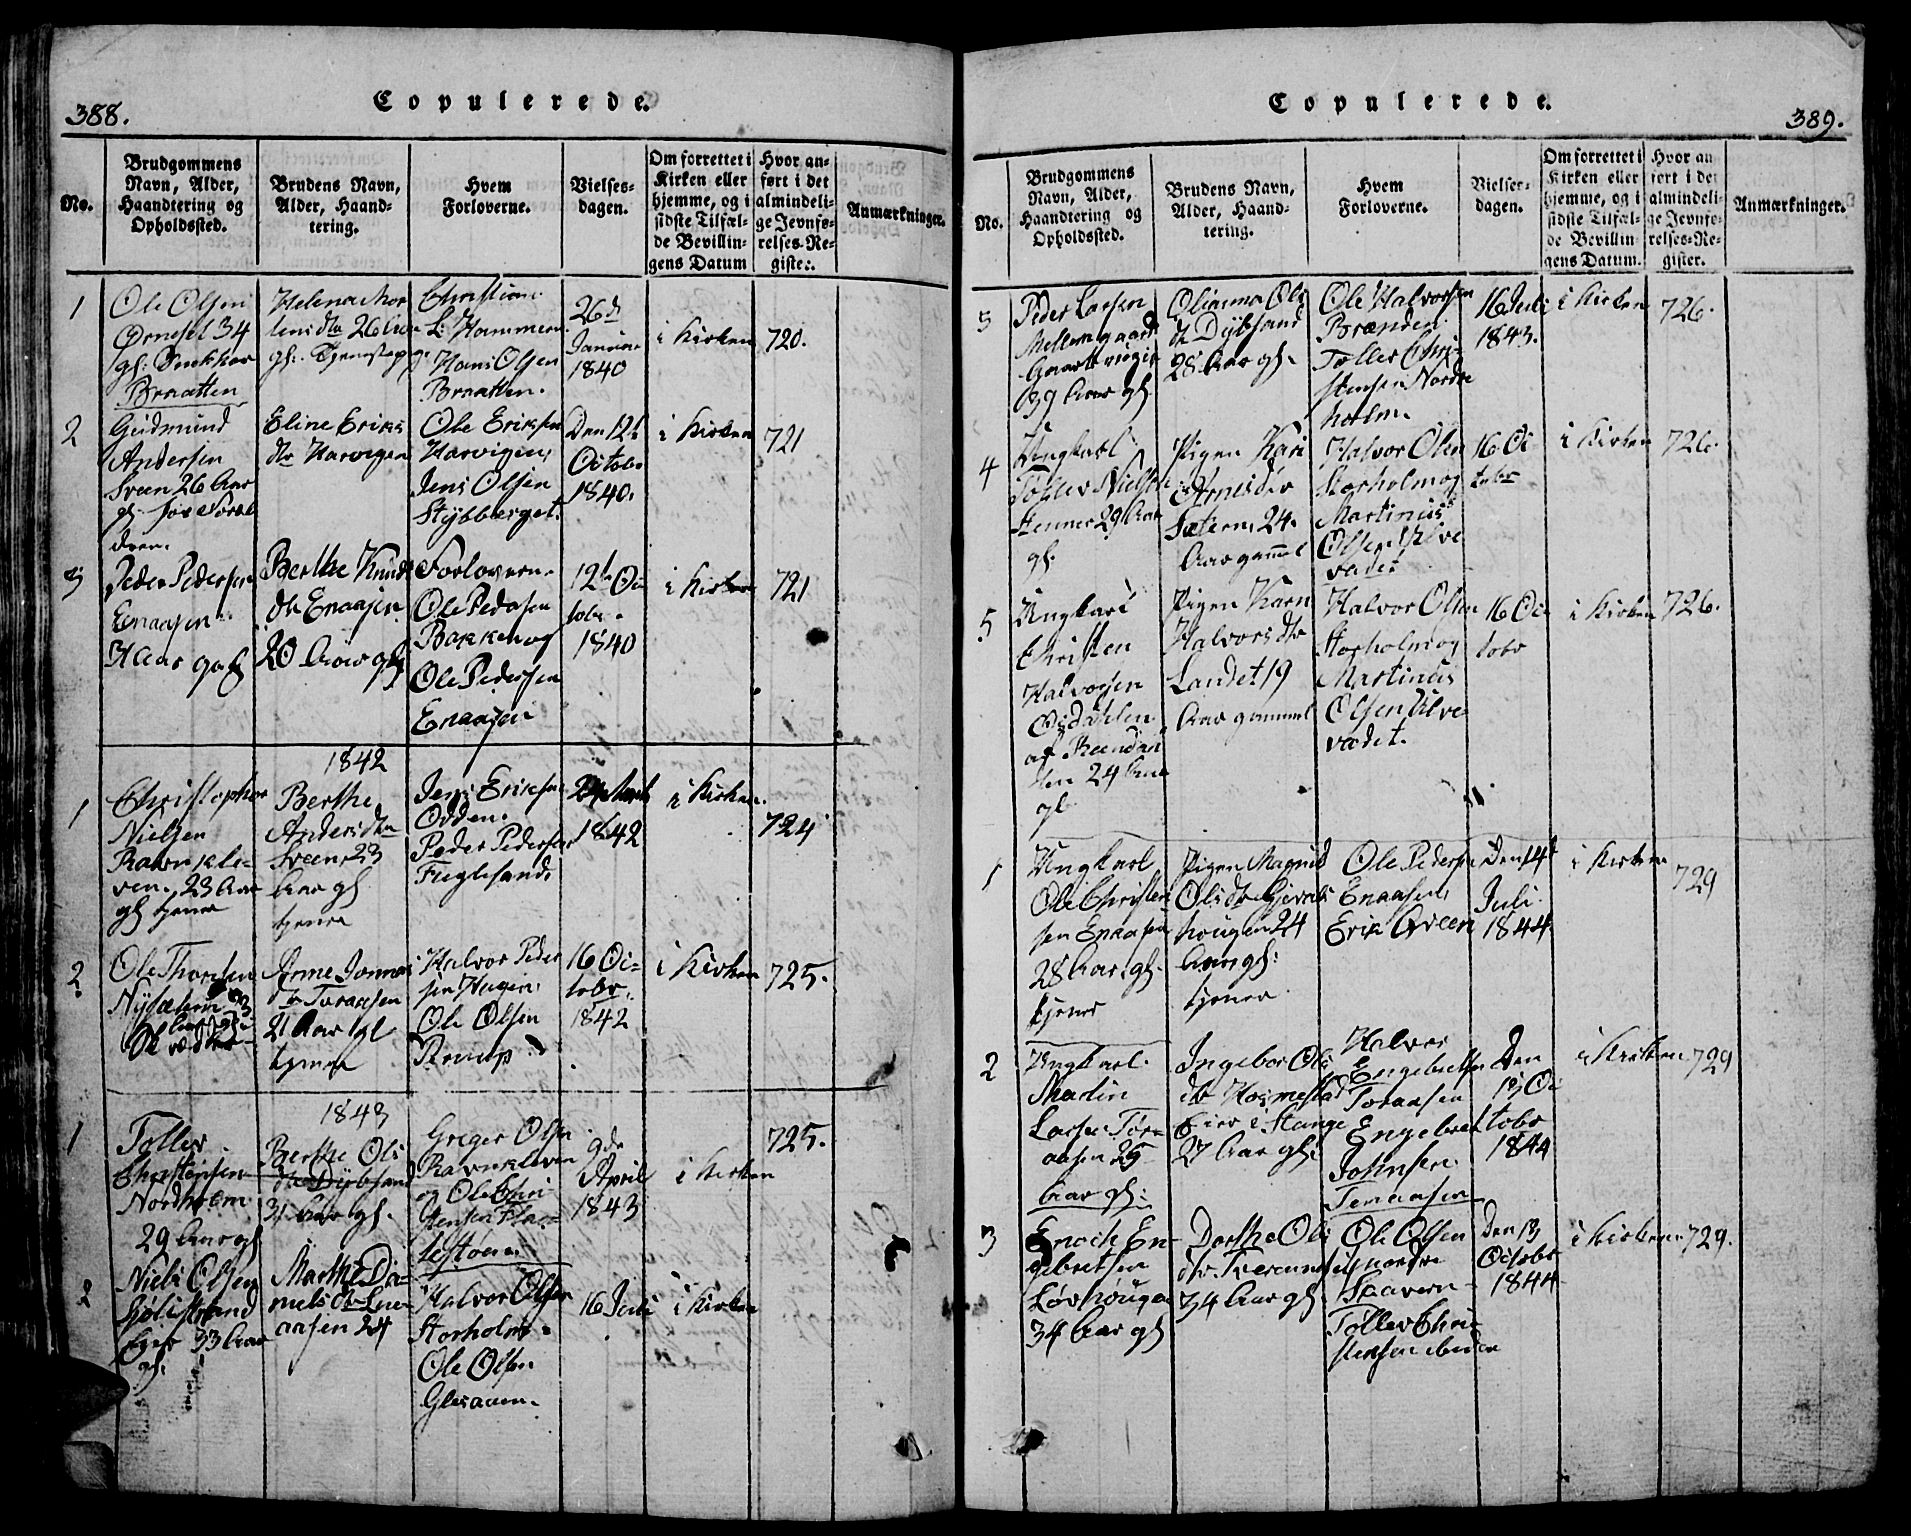 388.
Copulerede.
No.
Brudgommens
Navn, Alder,
Haandtering og
Opholdssted.
Brudens Navn,
Alder, Haand-
tering.
Hvem
Forloverne.
Vielses-
dagen.
Om forrettet i
Kirken eller
hjemme, og i
sidste Tilfæl-
de Bevillin-
gens Datum
Hvor an-
ført i det
almindeli-
ge Jevnfø-
relses-Re-
gister.
Anmærkninger.
1
Ole Olsen
34
gl.
Braatten
Helena
26 Aar
gl.
Christian
L. Hammeren
Hans Olsen
Braatten.
26de
Januar
1840
i Kirken
720.
2
Gudmund
Andersen
Sveen 26 Aar
gl.
Eline Eriks
dtr Harvigen
Ole Eriksen
Harvigen,
Jens Olsen
Stybberget.
Den 12te
Octobr
1840.
i Kirken
721
3
Peder Pedersen
Enaasen
Berthe Knuds
dtr Enaasen
20 Aar gl
Forlovern.
Ole Pedersen
Bakken og
Ole Pedersen
Enaasen
12te Oc
tobr.
1840
i Kirken
721
1842
1
Christopher
Nielsen
Ravnkle-
ven. 23 Aar
gl tjener
Berthe
Andersdtr
Sveen 23
Aar gl
tjener
Jens Eriksen
Odden.
Peder Pedersen
Fuglesand
1842
i Kirken.
724
2.
Ole Thorsen
Aar gl.
Anne
dtr Toraasen
21 Aar gl
tjener
Halvor Peder
sen
Ole Olsen
16 Oc-
tobr.
1842
i Kirken
725.
1843
1
Tollev
Christensen
Nordholm
29 Aar gl
Berthe Ols
dtr Dybsand
31 Aar gl.
Greger Olsen
Ravnkleven
og Ole Chri
stensen
9de
April
1843
i Kirken
725.
2
Niels Olsen
33 Aar
gl.
Marthe Da-
niels dtr Ene-
aasen 24
Halvor Olsen
Storholm.
Ole Olsen
Glesaaen.
16 Juli
i Kirken
389.
Copulerede.
No.
Brudgommens
Navn, Alder,
Haandtering og
Opholdssted.
Brudens Navn,
Alder, Haand-
tering.
Hvem
Forloverne.
Vielses-
dagen.
Om forrettet i
Kirken eller
hjemme, og i
sidste Tilfæl-
de Bevillin-
gens Datum.
Hvor an
ført i det
almindeli-
ge Jevnfø-
relses-Re-
gister.
Anmærkninger.
3
Peder Larsen
Mellemgaard
39 Aar gl
Olianna Ols
dtr Dybsand
28 Aar gl.
Ole Halvorsen
Brænden
Tollev Chri-
stensen Nordre
holm.
16 Juli
1843.
i Kirken
726.
4
Ungkarl
Tollev Nielsen
Stenner 29 Aar
gl.
Pigen Kari
Arnesdtr
Sætern 24.
Aar gammel
Halvor Olsen
Storholm og
Martinus
Olsen Ulve
vadet
16 Oc
tobr
i Kirken
726.
5
Ungkarl
Christen
Halvorsen
Osdahlen
af Reendal
den 24 Aar
gl
Pigen Karn
Halvorsdtr
Landet 19
Aar gammel
Halvor Olsen
Storholm og
Martinus
Olsen Ulve
vadet.
16 Oc
tobr
i Kirken
726.
1
Ungkarl
Ole Christen
sen Enaasen
28 Aar gl.
tjener
Pigen Magnild
Olsdtr
hougen 24
Aar gl:
tjener
Ole Pedersen
Enaasen
Erik Qveen
Den 14de
Juli
1844
i Kirken
729
2
Ungkarl.
Martin
Larsen Tor-
aasen 25
Aar gl:
Ingebor Ols
dtr Hosmestad
Eier i Stange
27 Aar gl:
Halvor
Engebretsen
Toraasen
Engebret
Johnsen
Toraasen
Den
13 Oc
tobr
1844
i Kirken
729
3
Enoch En-
gebretsen
Løvhougen
34 Aar gl
Dorthe Ols
dtr.
34 Aar gl.
Ole Olsen
nordre
Skavern
Tollev Chri-
stensen
Den 13
Octobr
1844
i Kirken
729.